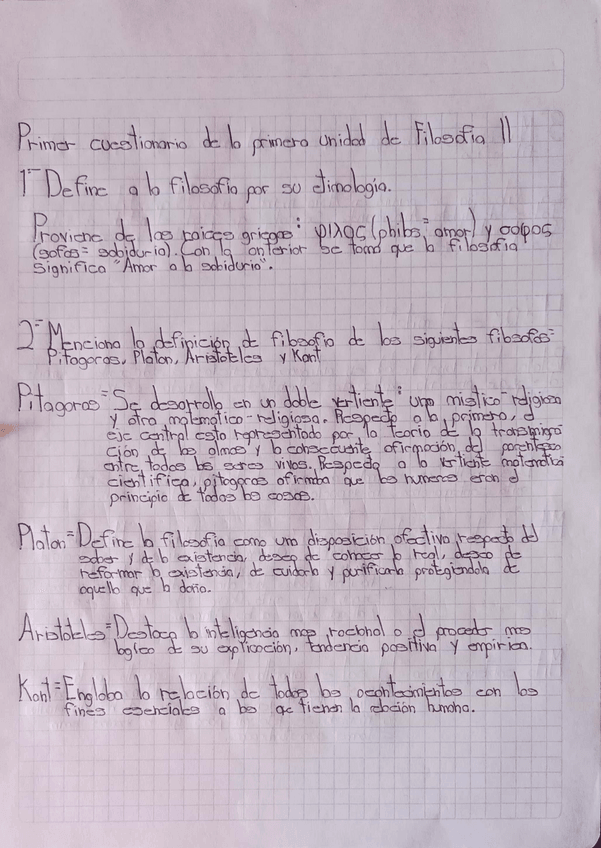 Primer cuestionario de la primera unidad de Filosofia II
1- Define a la filosofia por su etimologia.
Proviene de las raices griegas: φιλος (philos= amor) y σοφος
(sofos= sabiduria). Con la anterior se toma que la filosofia
significa "Amor a la sabiduria".
2- Menciona la definición de filosofia de los siguientes filosofos=
Pitagoras, Platon, Aristoteles y Kant
Pitagoras= Se desarrollo en un doble vertiente: una mistico-religiosa
y otra matematico-religiosa. Respecto a la primera, el
eje central esta representado por la teoria de la transmigra
ción de las almas y la consecuente afirmación del parentesco
entre todos los seres vivos. Respecto a la vertiente matematica
cientifica, pitagoras afirmaba que los numeros eran el
principio de todas las cosas.
Platon= Define la filosofia como una disposición afectiva respecto del
saber y de la existencia, deseo de conocer lo real, deseo de
reformar la existencia, de cuidarla y purificarla protegiendola de
aquello que la daña.
Aristoteles= Destaca la inteligencia mas racional o el proceder mas
logico de su explicación, tendencia positiva y empirica.
Kant= Engloba la relación de todos los acontecimientos con los
fines esenciales a los que tienen la relación humana.